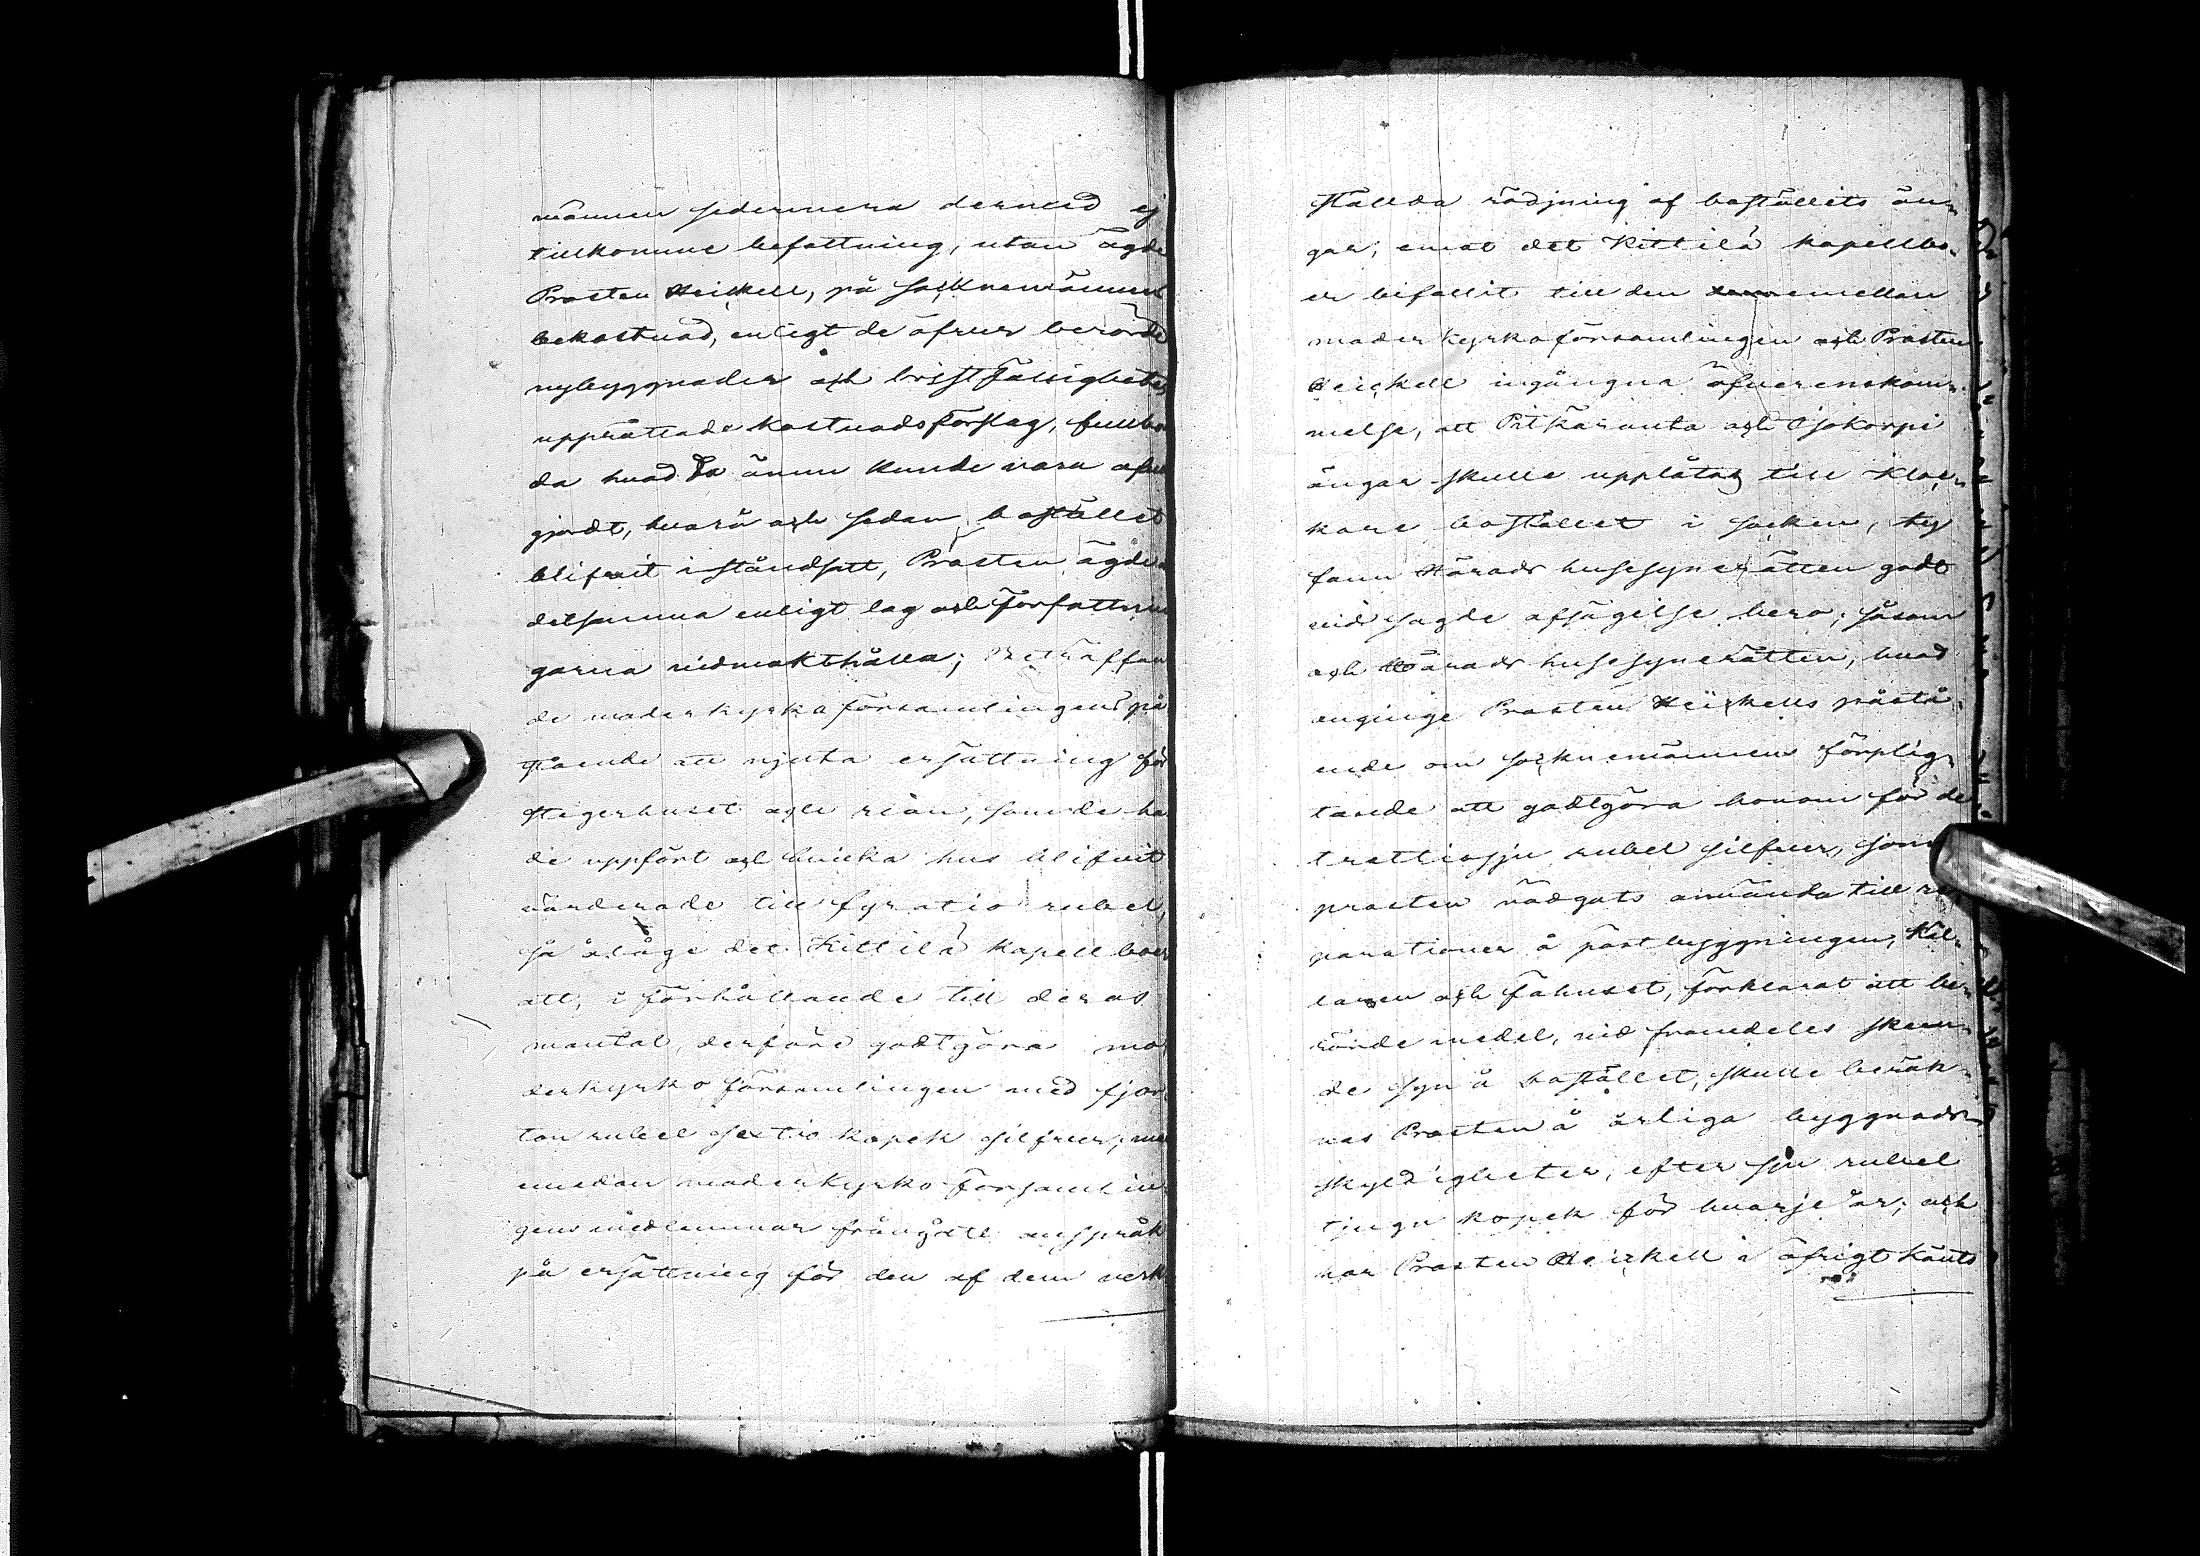 männen sedermera dermed ej
tillkomme befattning, utan ägde
Prosten Heickell, på socknemännens
bekostnad, enligt de öfver berörde
nybyggnader och bristfälligheter
upprättade kostnadsförslag, fullbor
da hvad då ännu kunde vara ofull
gjordt, hvarå och sedan bostället
blifvit iståndsatt, Prosten ägde
detsamma enligt lag och författnin
garna vidmakthålla; Beträffan
de moderkyrkoförsamlingens på
stående att njuta ersättning för
stegerhuset och rian, som de ha
de uppfört och hvilka hus blifvit
värderade till fyratio rubel,
så ålåge det Kittilä kapellboer
att, i förhållande till deras
mantal, derföre godtgöra mo
derkyrko församlingen med fjor
ton rubel sextio kopek silfver; me
emedan moderkyrko församlin
gens medlemmar frångått anspråk
på ersättning för den af dem verk
ställda rödjning af boställets än-
gar; emot det Kittilä kapellbo-
er bifallit till den emellan
moder kyrkoförsamlingen och Prosten
Heickell ingångna öfverenskom-
melse, att Pitkäranta och Isokorpi
ängar skulle upplåtas till Kloc-
kare bostället i socken, ty
fann Härads husesynerätten godt
vid sagde afsägelse bero; såsom
och Härads husesynerätten, hvad
anginge Prosten Heickells påstå-
ende om socknemännens förplig-
tande att godtgöra honom för de
trettiosju rubel silfver, som
prosten nödgats använda till re
parationer å pörtbyggningen, Käl-
laren och fähuset, förklarat att be-
rörde medel, vid framdeles skeen-
de syn å bostället, skulle beräk-
nas Prosten å årliga byggnads-
skyldigheter, efter sju rubel
tjugu kopek för hvarje år; och
har Prosten Heickell i öfrigt känts